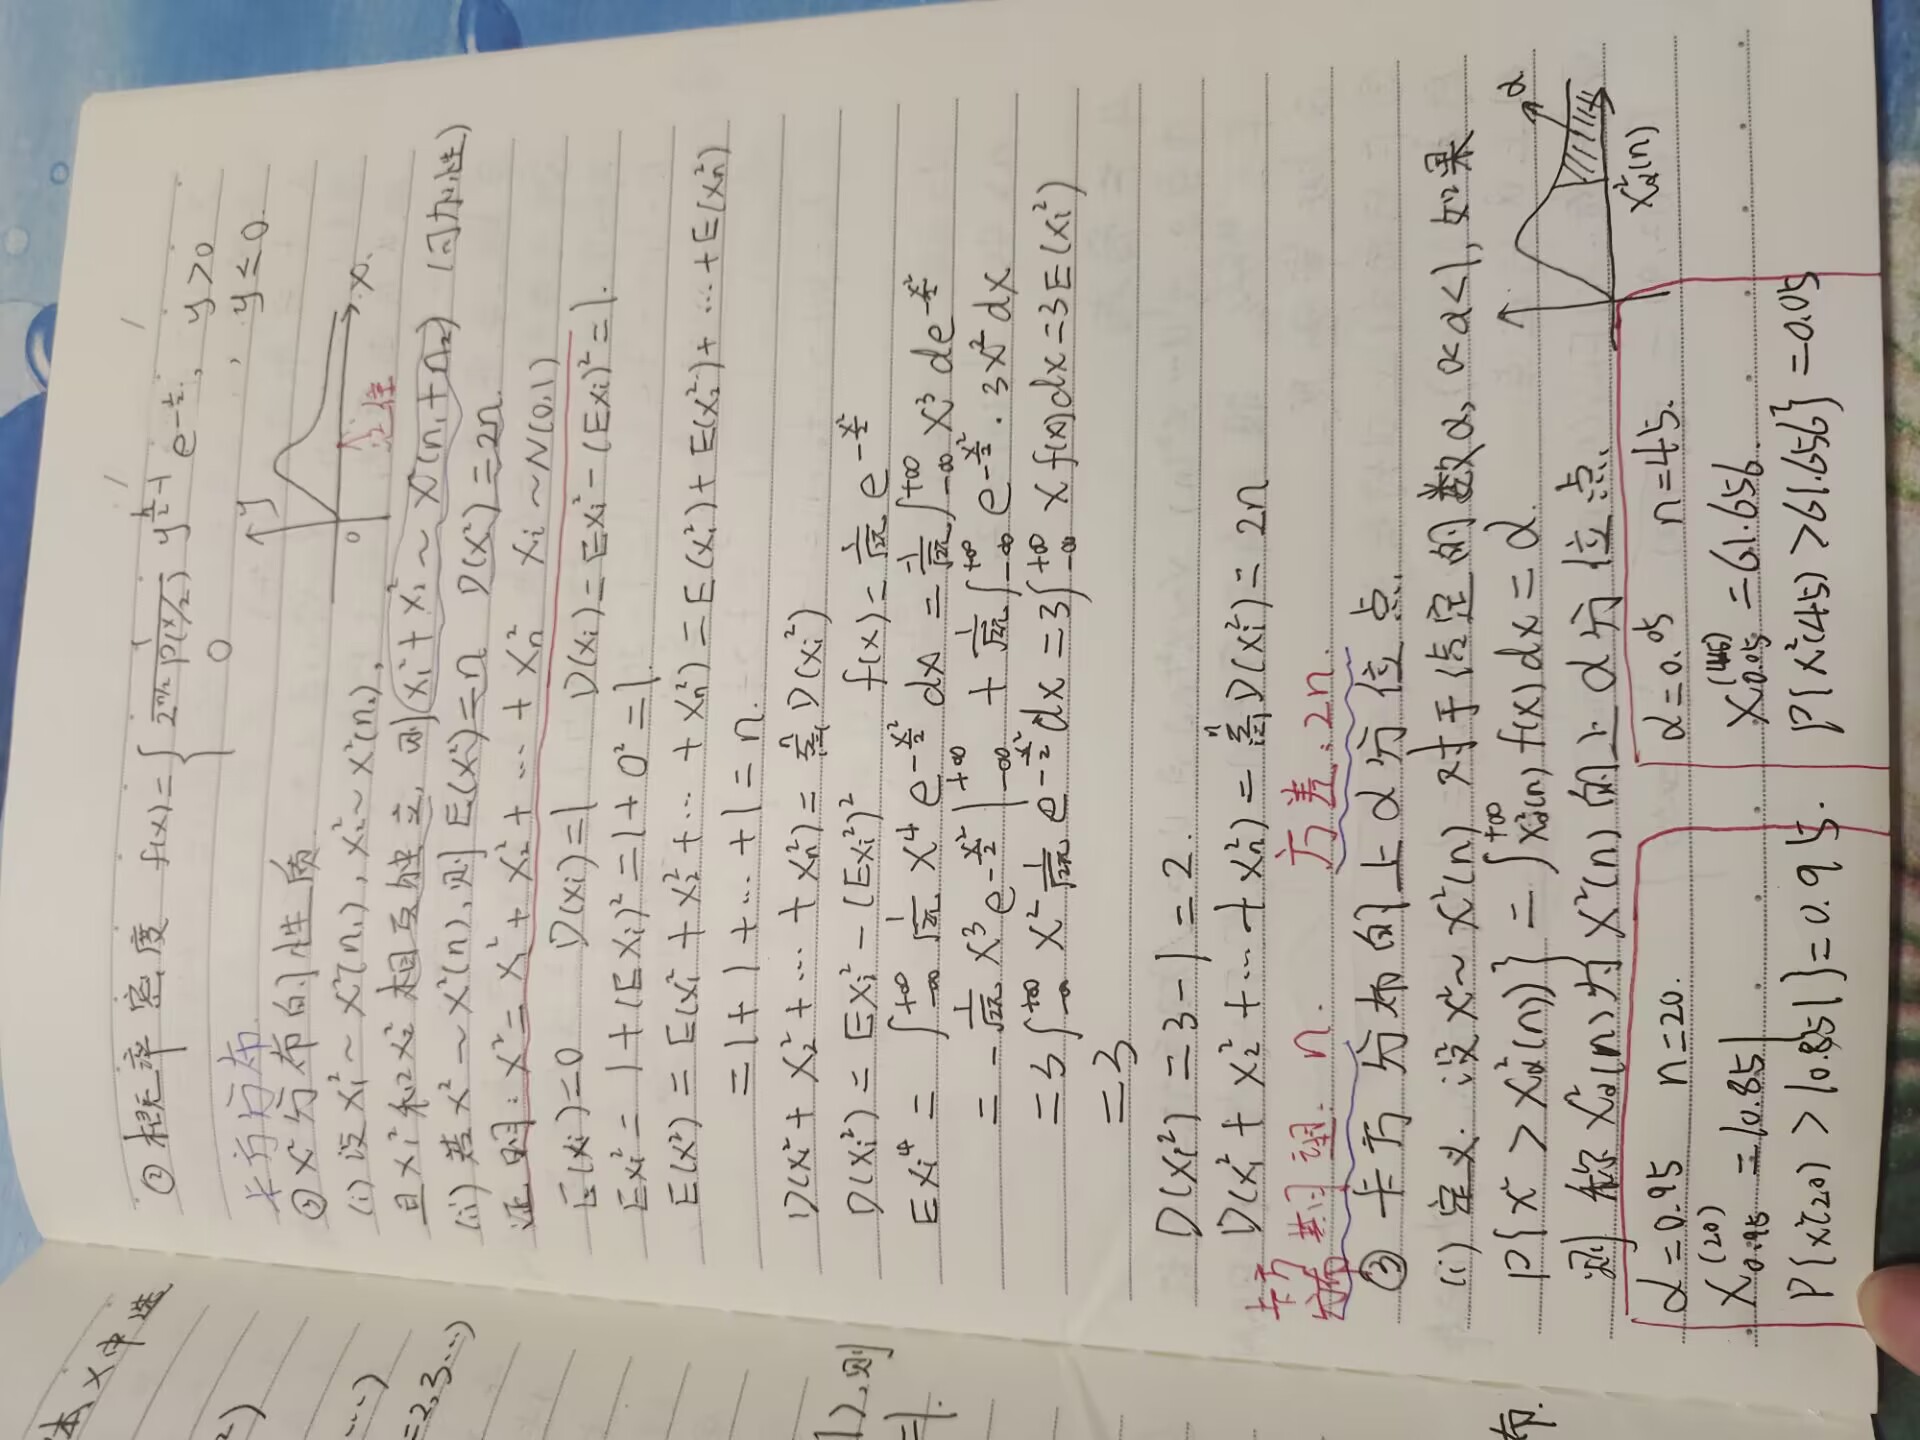 ② 概率密度 f(x)={ 1/(2^{n/2}Γ(x/2)) y^{n/2-1} e^{-y/2}, y>0
0 , y≤0
y
0
x.
卡方分布
② X²分布的性质
(i) 设 X₁²~X²(n₁), X₂²~X²(n₂),
且 X₁²和X₂² 相互独立, 则 X₁²+X₂²~X²(n₁+n₂) (可加性)
(ii) 若 X²~X²(n), 则 E(X²)=n D(X²)=2n
证明: X²=X₁²+X₂²+…+Xn² Xi~N(0,1)
E(Xi)=0 D(Xi)=1 D(Xi)=EXi²-(EXi)²=1.
EXi²=1+(EXi)²=1+0²=1.
E(X²)=E(X₁²+X₂²+…+Xn²)=E(X₁²)+E(X₂²)+…+E(Xn²)
=1+1+…+1=n.
D(X₁²+X₂²+…+Xn²)=∑_{i=1}^{n}D(Xi²)
D(Xi²)=EXi⁴-(EXi²)² f(x)=1/√2π e^{-x²/2}
EXi⁴=∫_{-∞}^{+∞} 1/√2π x⁴ e^{-x²/2} dx=-1/√2π ∫_{-∞}^{+∞} x³ de^{-x²/2}
=-1/√2π x³e^{-x²/2}|_{-∞}^{+∞}+1/√2π ∫_{-∞}^{+∞} e^{-x²/2}·3x²dx
=3∫_{-∞}^{+∞} x² 1/√2π e^{-x²/2}dx=3∫_{-∞}^{+∞} x f(x)dx=3E(Xi²)
=3
D(Xi²)=3-1=2.
D(X₁²+X₂²+…+Xn²)=∑_{i=1}^{n}D(Xi²)=2n
卡方分布 期望: n. 方差: 2n.
③ 卡方分布的上α分位点.
(i) 定义. 设X²~X²(n) 对于给定的数α, 0<α<1, 如果
P{X²>Xα²(n)}=∫_{Xα²(n)}^{+∞} f(x)dx=α.
α
Xα²(n)
则称Xα²(n)为X²(n)的上α分位点.
α=0.95 n=20. α=0.05 n=45.
X_{0.95}^{(20)}=10.851 X_{0.05}=61.656.
P{X²(20)>10.851}=0.95. P{X²(45)>61.656}=0.05
体, X中选
=2,3…)
), 则
=1.
布.